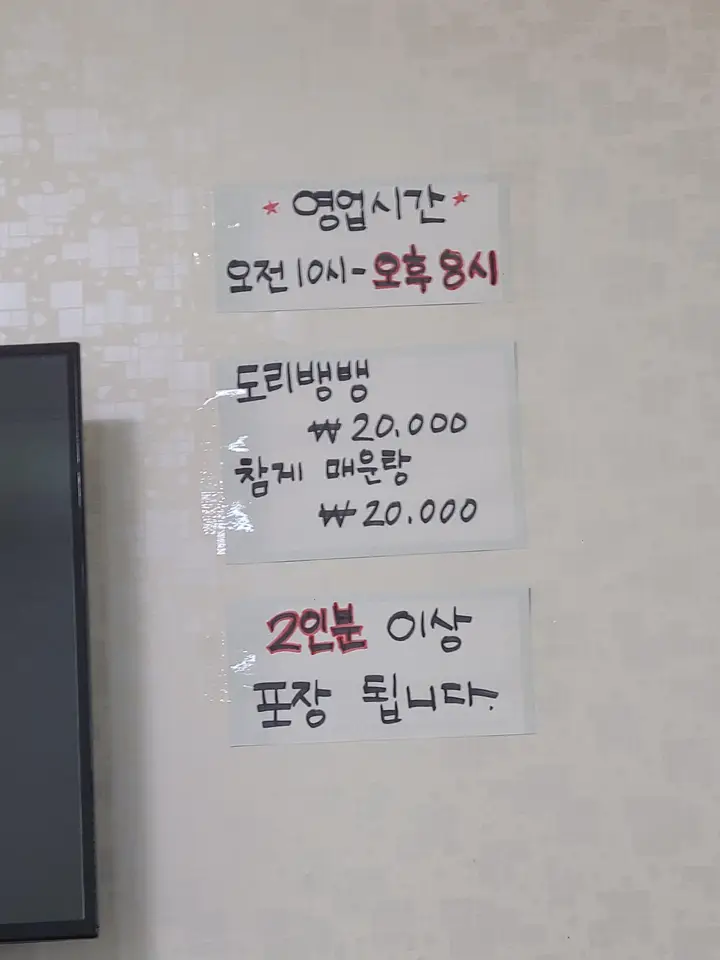 ★ 영업시간 ★
오전 10시 - 오후 8시
도리뱅뱅
₩ 20.000
참게 매운탕
₩ 20.000
2인분 이상
포장 됩니다.